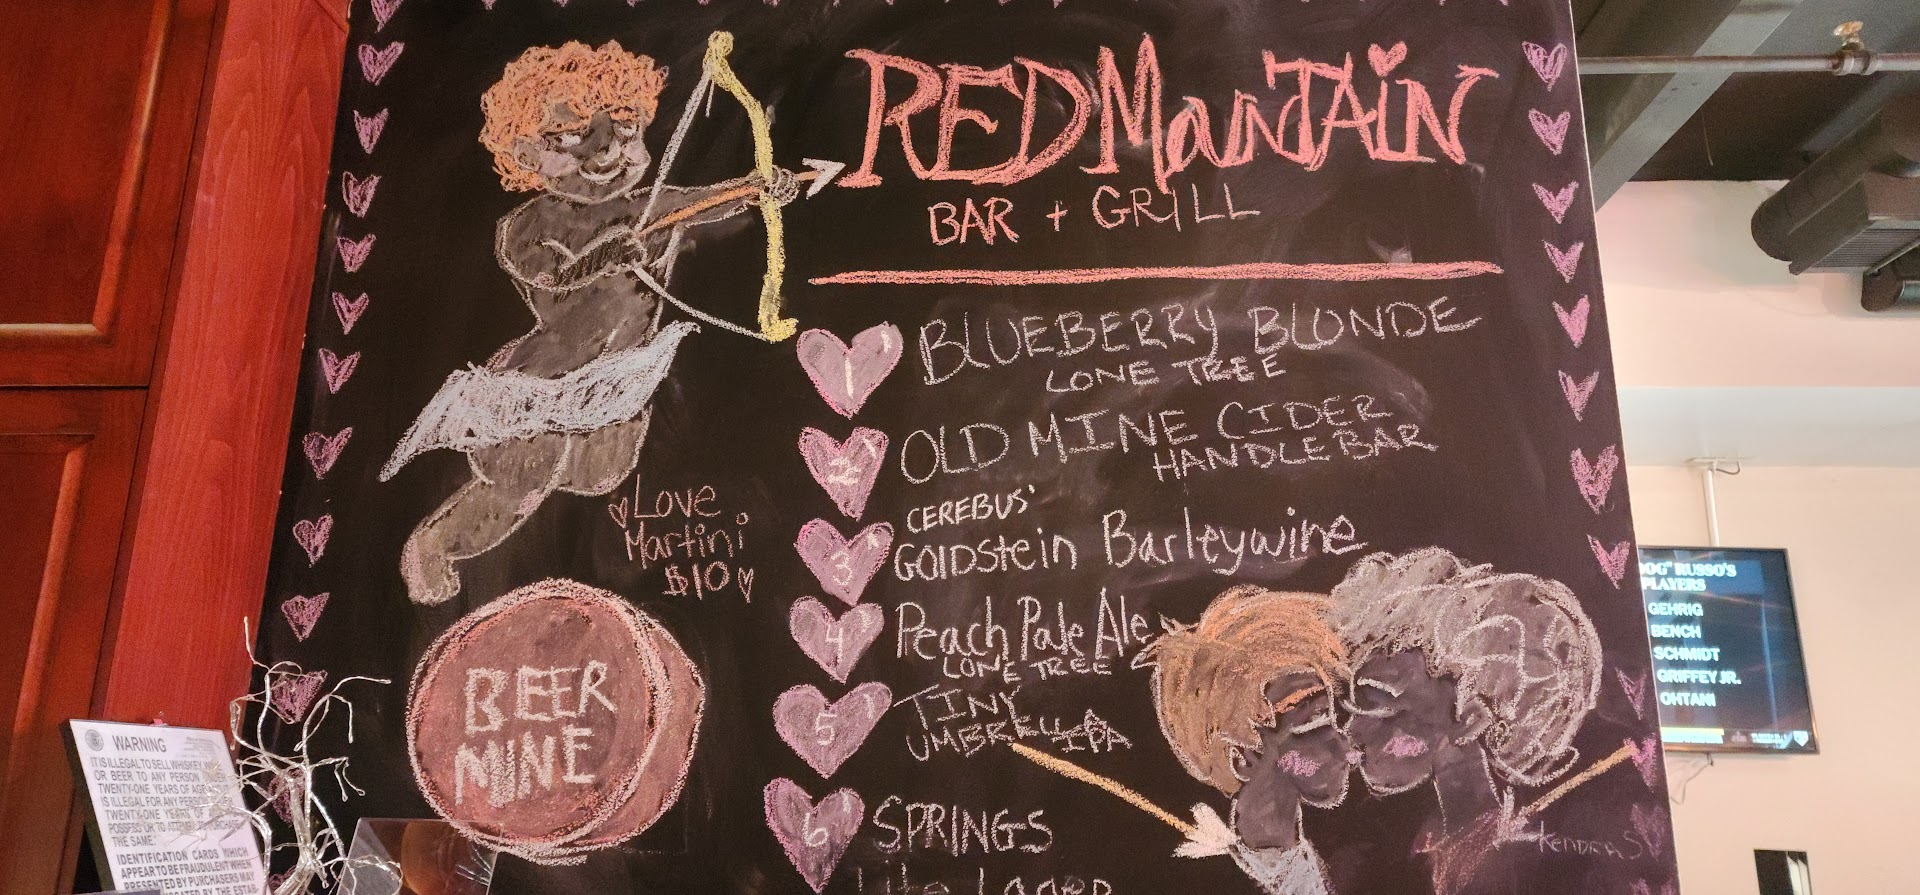 REDMountain
BAR + GRILL
1 BLUEBERRY BLONDE
LONE TREE
2 OLD MINE CIDER
HANDLEBAR
CEREBUS'
3 GOldstein Barleywine
4 Peach Pale Ale
LONE TREE
5 TINY
UMBRELLA IPA
6 SPRINGS
Lite Lager
Love
Martini
$10
BEER
MINE
KENDERS
WARNING
IT IS ILLEGAL TO SELL WHISKEY,
OR BEER TO ANY PERSON
TWENTY-ONE YEARS OF AGE
IS ILLEGAL FOR ANY PERSON
TWENTY-ONE YEARS OF
POSSESS OR TO ATTEMPT PURCHASE
THE SAME.
IDENTIFICATION CARDS WHICH
APPEAR TO BE FRAUDULENT WHEN
PRESENTED BY PURCHASERS MAY
BY THE ESTAB-
DOG" RUSSO'S
PLAYERS
GEHRIG
BENCH
SCHMIDT
GRIFFEY JR.
OHTANI